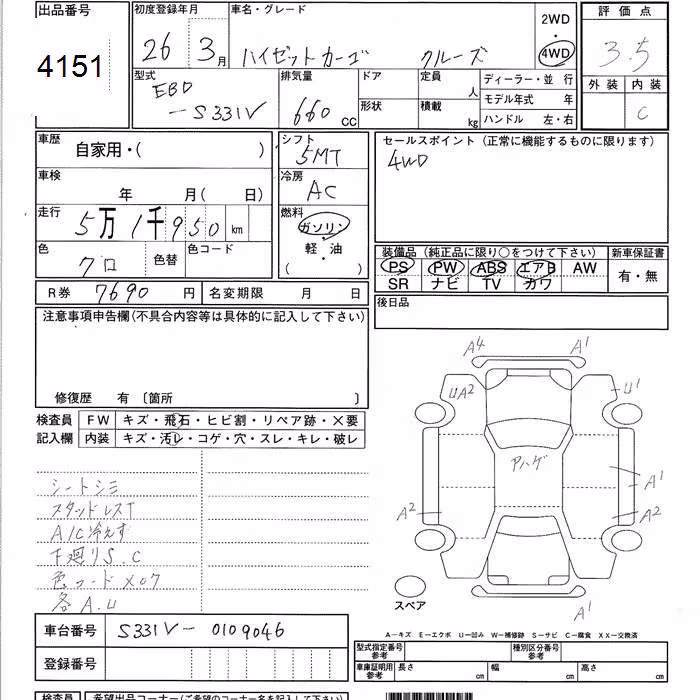 出品番号 初度登録年月 車名・グレード 2WD 評価点
4151 26 年 3 月 ハイゼットカーゴ クルーズ 4WD 3.5
型式 排気量 ドア 定員 ディーラー・並 行 外装 内装
EBD 人 モデル年式 年
-S331V 660 cc 形状 積載 kg ハンドル 左・右 C
車歴 シフト セールスポイント (正常に機能するものに限ります)
自家用・( ) 5MT 4WD
車検 冷房
年 月( 日) AC
走行 燃料
5万1千950 km ガソリン
色 色替 色コード 軽・油 装備品 (純正品に限り○をつけて下さい) 新車保証書
クロ ( ) PS PW ABS エアB AW 有・無
R券 7690 円 名変期限 月 日 SR ナビ TV カワ
注意事項申告欄(不具合内容等は具体的に記入して下さい) 後日品
修復歴 有 〔箇所 〕
検査員 FW キズ・飛石・ヒビ割・リペア跡・X要
記入欄 内装 キズ・汚レ・コゲ・穴・スレ・キレ・破レ
A4 A1
UA2 U1
アハゲ
A2 A1
A2
A1
シートシミ
スタッドレスT
A/C冷えず
下廻りS.C
色コードX07
各A.U
スペア
A-キズ E-エクボ U-凹み W-補修跡 S-サビ C-腐食 XX-交換済
車台番号 S331V-0109046
登録番号
型式指定番号 参考 種別区分番号 参考
車庫証明用 参考 長さ cm 幅 cm 高さ cm
検査員 希望出品コーナー(ご希望のコーナー名を記入下さい)